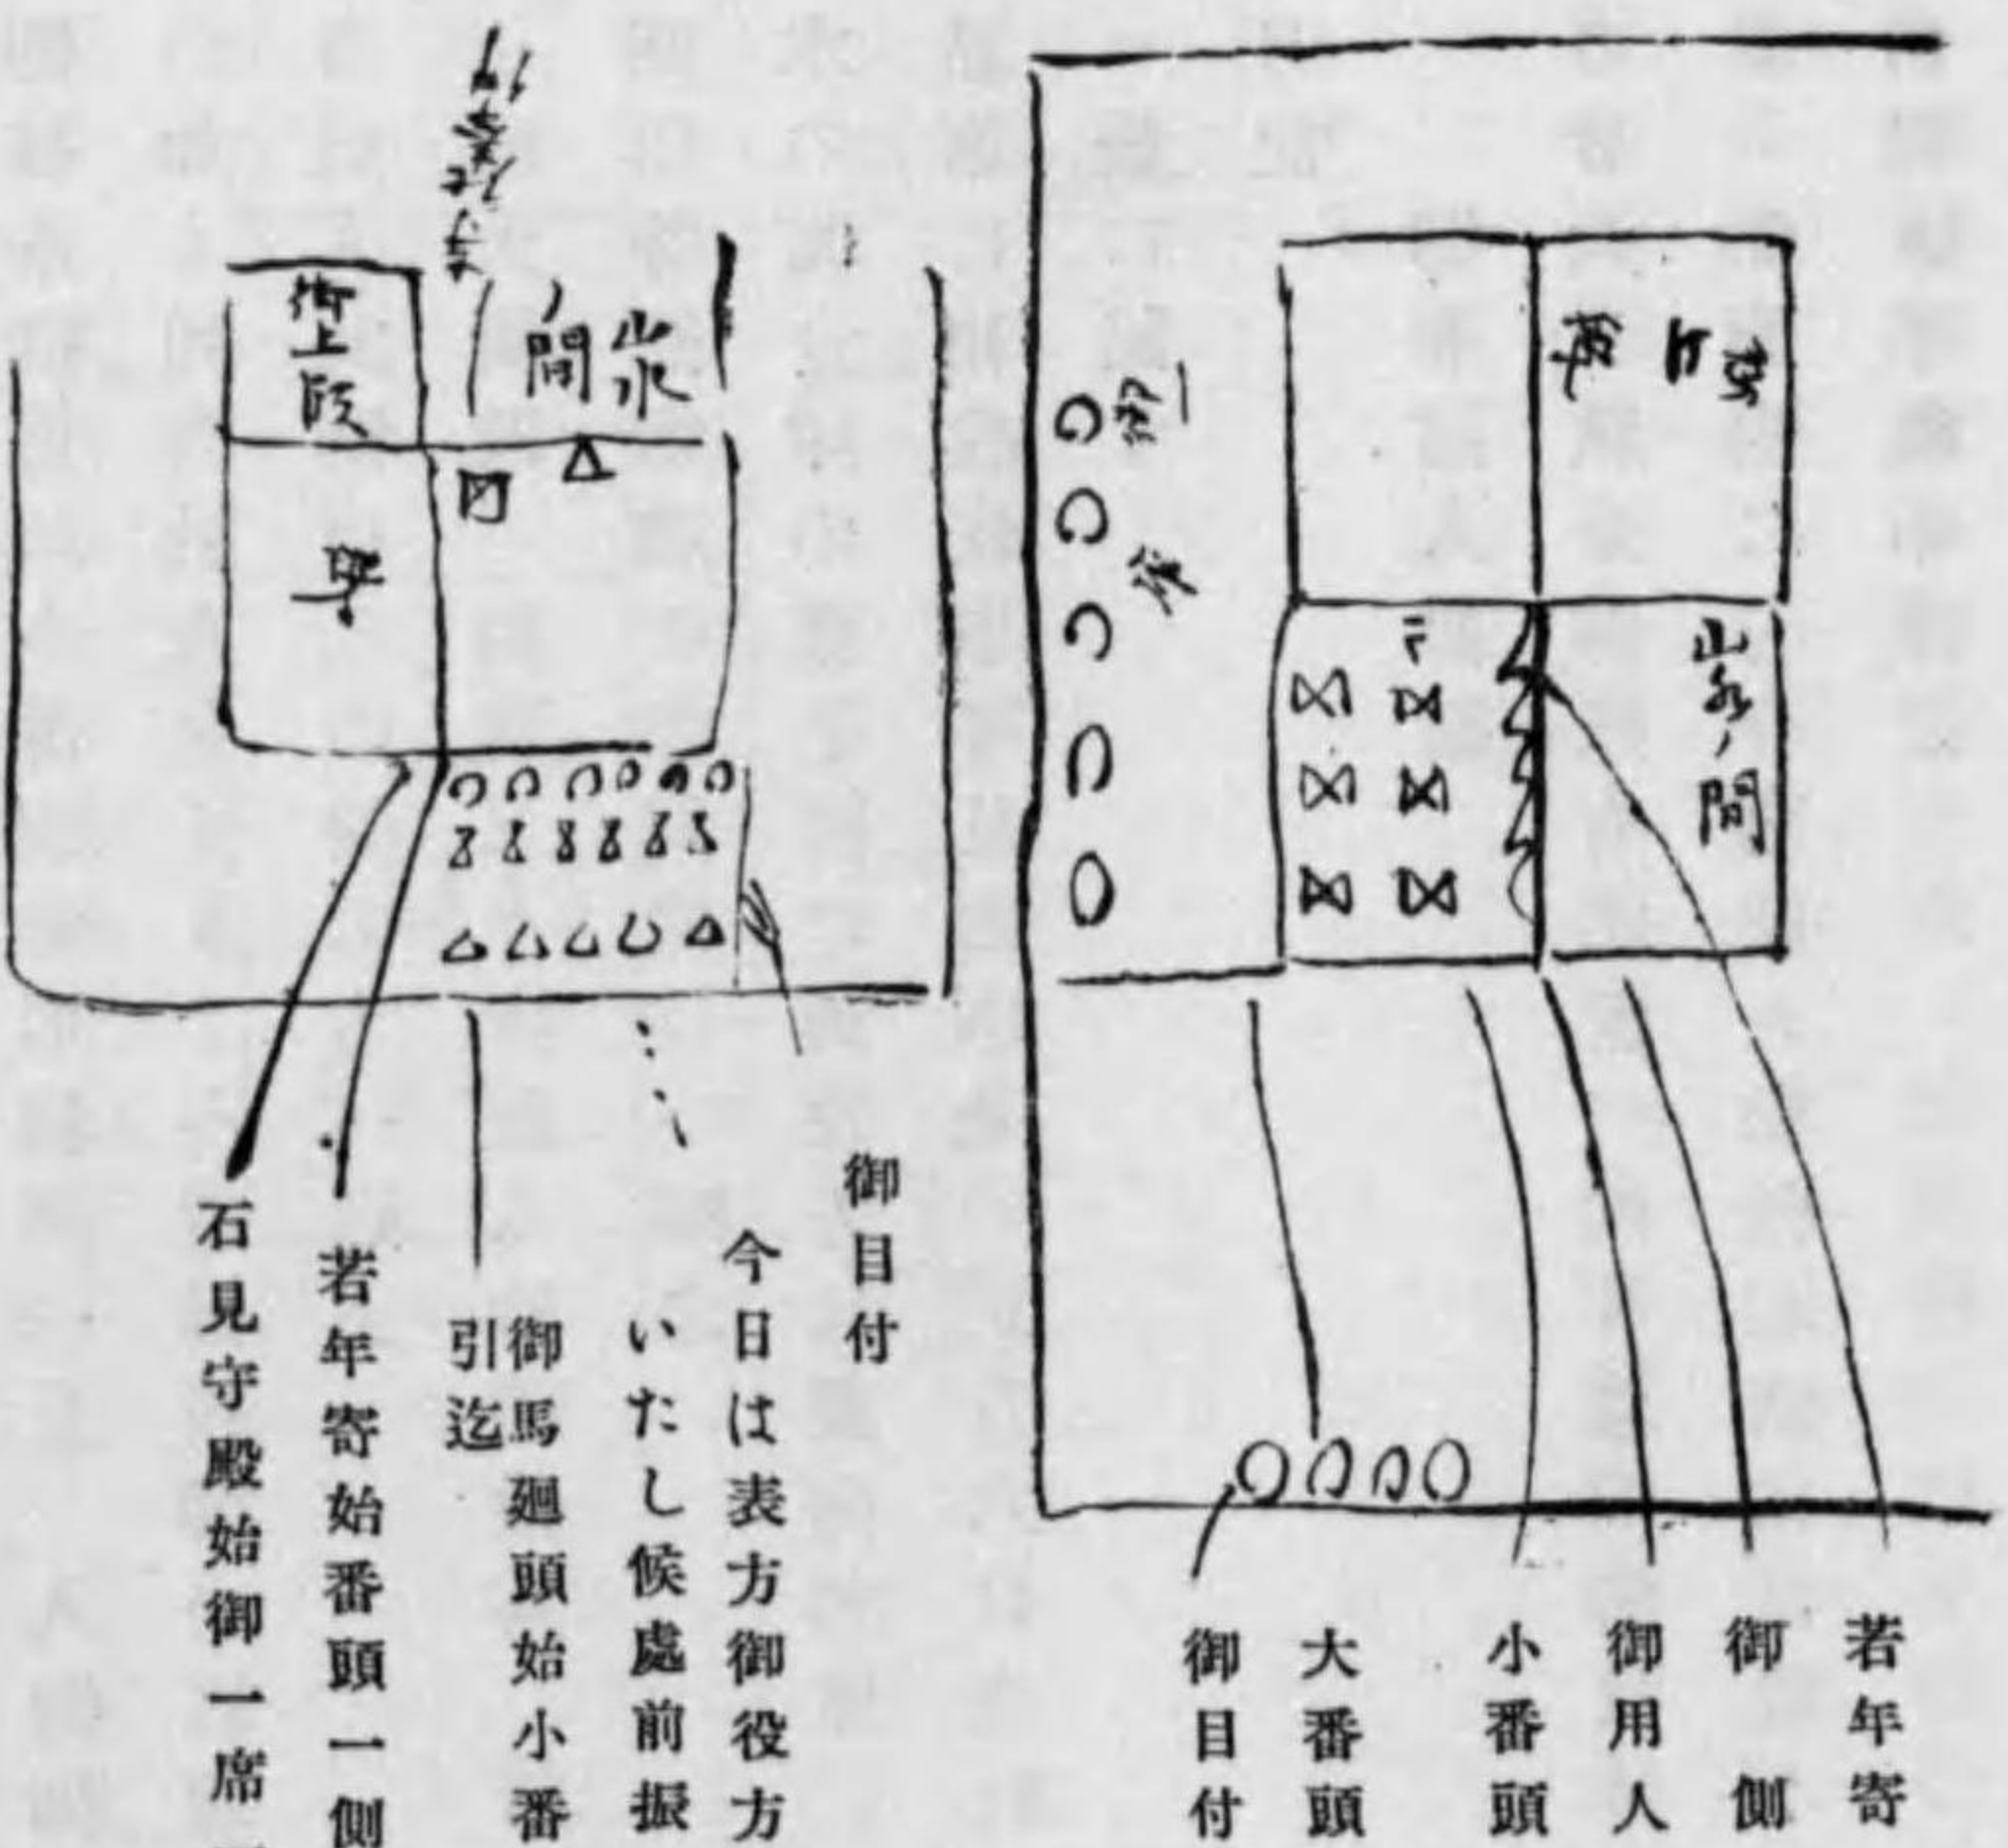 山水ノ間
若年寄
御側
御用人
小番頭
大番頭
御目付
山水
ノ間
御上段
御目付
今日は表方御役方
いたし候處前振
御馬廻頭始小番
引迄
若年寄始番頭一側
石見守殿始御一席